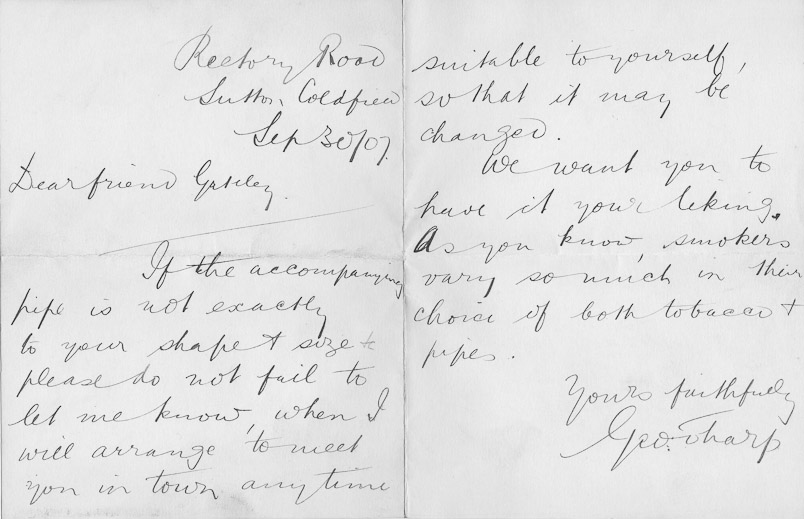 Rectory Road
Sutton Coldfield
Sep 30/07.
Dear friend Gateley.
If the accompanying
pipe is not exactly
to your shape & size
please do not fail to
let me know, when I
will arrange to meet
you in town any time
suitable to yourself,
so that it may be
changed.
We want you to
have it your liking.
As you know, smokers
vary so much in their
choice of both tobacco &
pipes.
Yours faithfully
Geo. Tharp